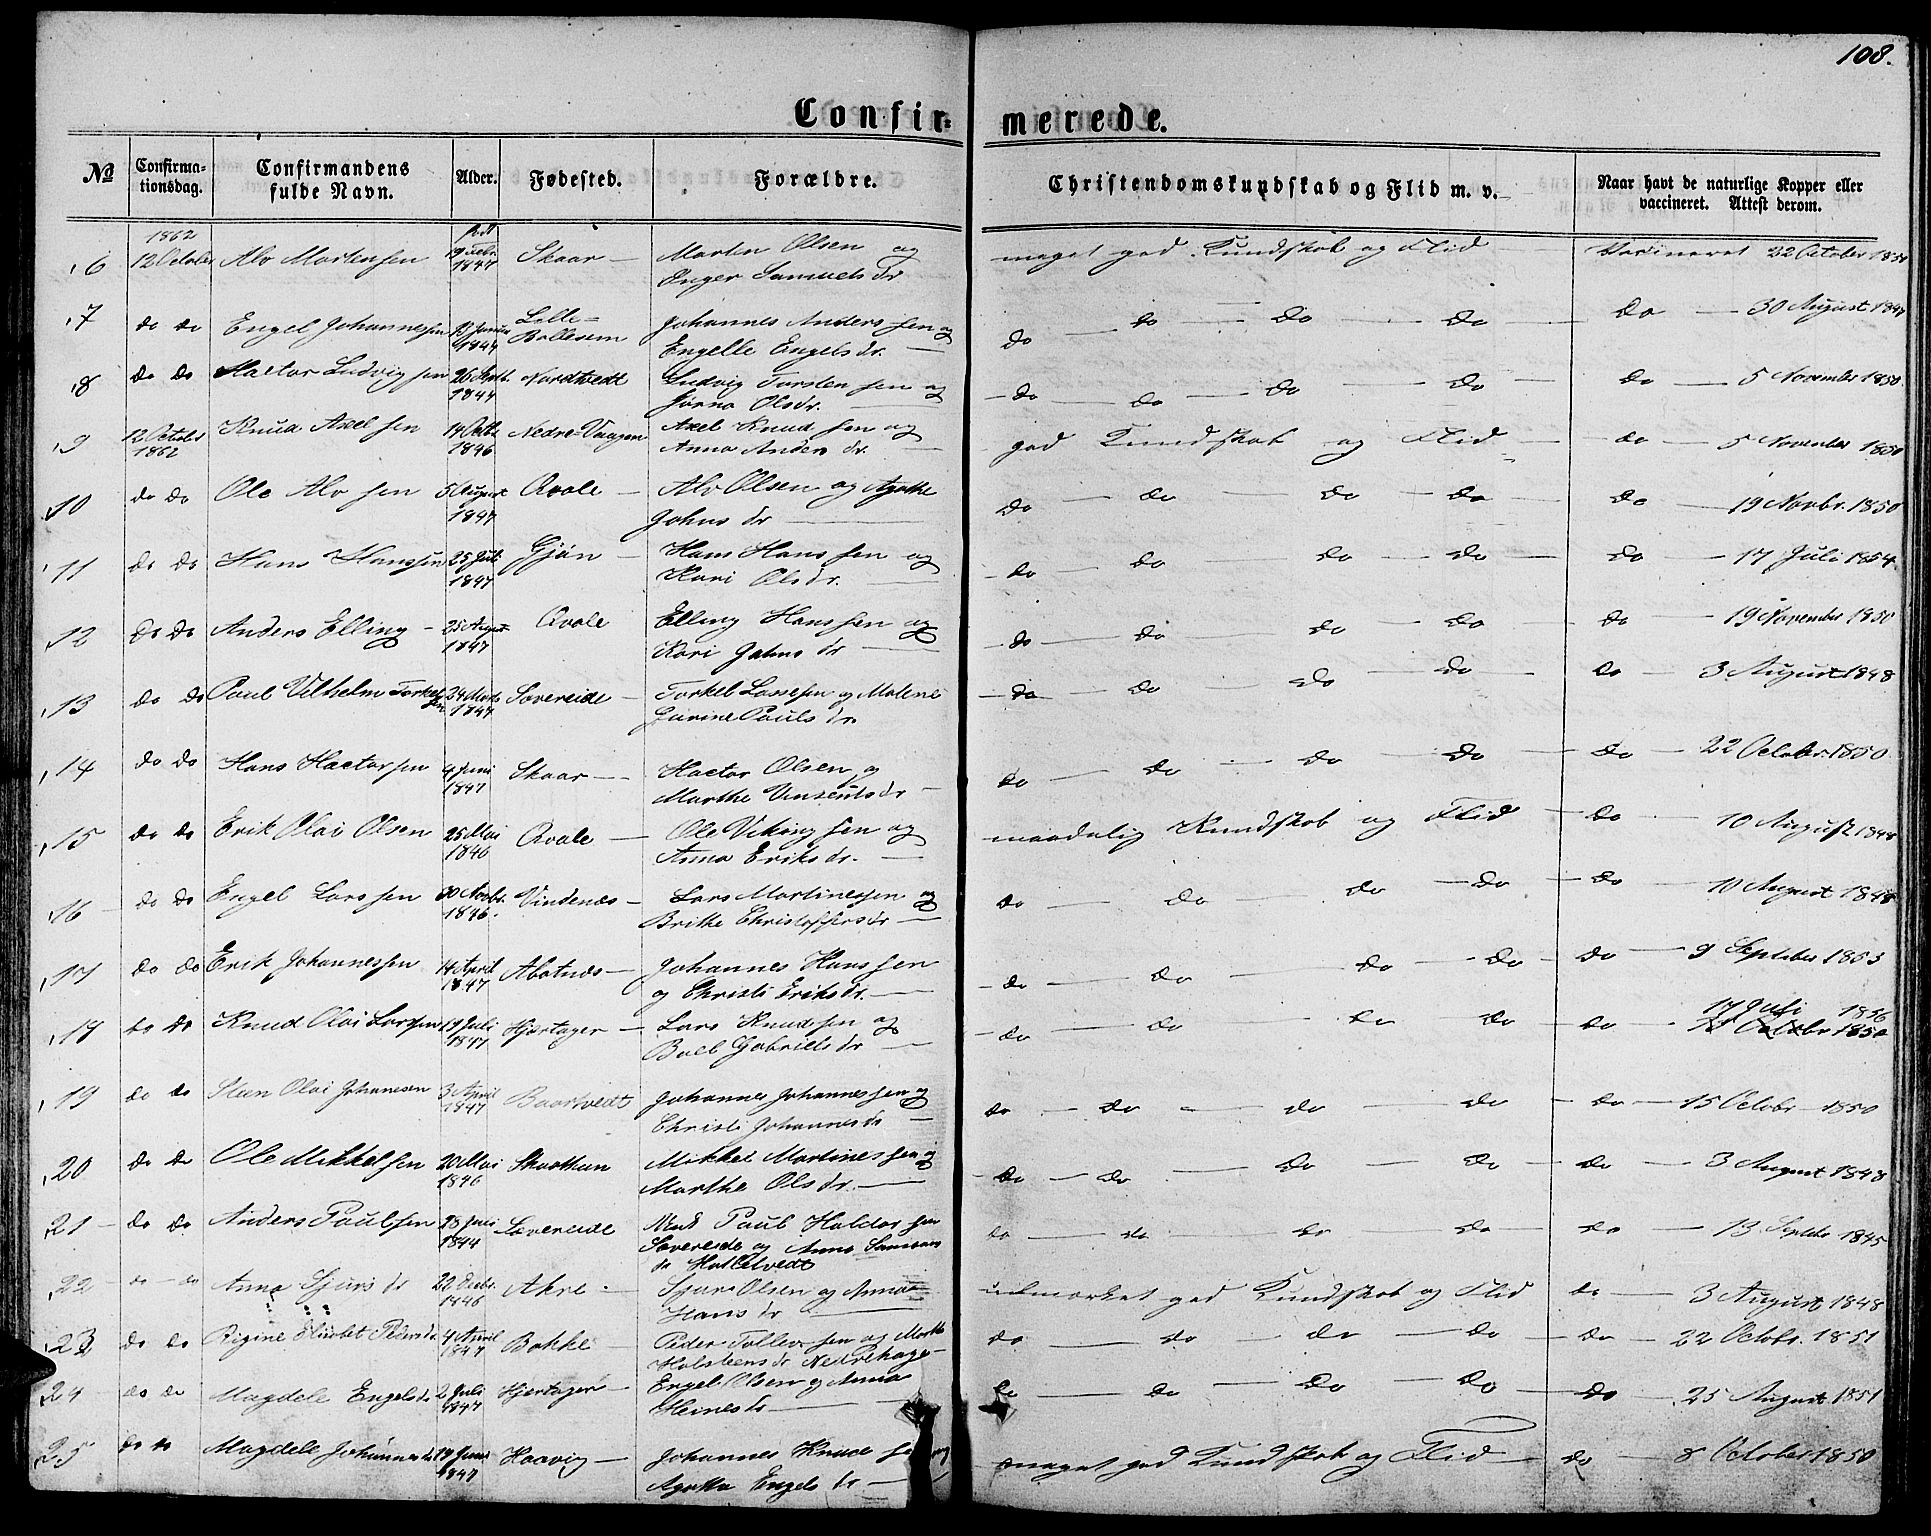 108.
Confirmerede.
No
Confirmationsdag.
Confirmandens fulde Navn.
Alder.
Fødested.
Forældre.
Christendomskundskab og Flid m. v.
Naar havt de naturlige Kopper eller vaccineret. Attest derom.
6 1862 12 October Alv Mortensen 19 Febr. 1847 Skaar Morten Olsen og Inger Samuelsdr meget god Kundskab og Flid Vaccineret 22 October
7 do do Engel Johannessen 1844 Lille-Bollesen Johannes Anderssen og Engelle Engelsdr. do do do do do 30 August 1847
8 do do Hactor Ludvigsen 26 1844 Nordtvedt Ludvig Torstensen og Jørna Olsdr. do do do do do 5 November 1850.
9 12 October 1862 Knud Axelsen 14 Octbr 1846 Nedre-Vaagen Axel Knudsen og Anna Andersdr god Kundskab og Flid do 5 November 1850
10 do do Ole Alvsen 5 August 1847 Qvale Alv Olsen og Agathe Johnsdr do do do do do 19 Novbr. 1850
11 do do Hans Hanssen 25 Juli 1847 Gjøn Hans Hanssen og Kari Olsdr. do do do do do 17 Juli 1854.
12 do do Anders Elling 25 August 1847 Qvale Elling Hanssen og Kari Johnsdr do do do do do 19 November 1850
13 do do Paul Vilhelm Torkelsen 24 Marts 1847 Sovereide Torkel Lassesen og Malene Gurine Paulsdr. do do do do do 3 August 1848
14 do do Hans Hactorsen 4 Juni 1847 Skaar Hactor Olsen og Marthe Vinsentsdr do do do do do 22 Octobr. 1850
15 do do Erik Olai Olsen 25 Mai 1846 Qvale Ole Vikingsen og Anna Eriksdr. maadelig Kundskab og Flid do 10 August 1848
16 do do Engel Larssen 30 Novbr. 1846. Vindenæs Lars Martinessen og Brithe Christoffersdr do do do do do 10 August 1848
17 do do Erik Johannessen 14 April 1847 Alatnæs Johannes Hanssen og Christi Eriksdr. do do do do do 9 September 1853
18 do do Knud Olai Larssen 19 Juli 1847 Hjortager Lars Knudssen og Boel Gabrielsdr do do do do do 17 Juli 1856 21 Octobr 1850
19 do do Steen Olai Johanesen 3 April 1847 Baartvedt Johannes Johannessen og Christi Johannesdr do do do do do 15 Octobr 1850
20 do do Ole Mikkelsen 20 Mai 1846 Skarthun Mikkel Martinessen og Marthe Olsdr. do do do do do 3 August 1848
21 do do Anders Paulsen 1844 Sovereide Paul Haldorsen Sovereide og Anna Samsonsdr Hatletvedt do do do do do 13 Septbr 1845
22 do do Anna Sjursdr 22 Decbr. 1846 Akre Sjur Olsen og Anna Hansdr udmærket god Kundskab og Flid do 3 August 1848
23 do do Rigine Elisbet Pedersdr 4 April 1847 Bakke Peder Tollevsen og Marthe Holsteensdr Nedrehage do do do do do 22 Octobr. 1851
24 do do Magdele Engelsdr 2 Juli 1847 Hjortager Engel Olsen og Anna Heinesdr do do do do do 25 August 1851
25 do do Magdele Johannesdr 19 Juni 1847 Haavig Johannes Knudsen og Agatha Engelsdr meget god Kundskab og Flid do 8 October 1850